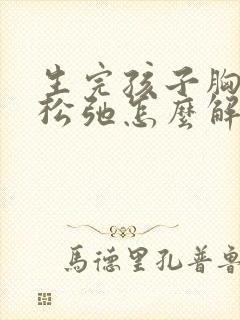 生完孩子胸
松弛怎麼解
馬德里孔普魯